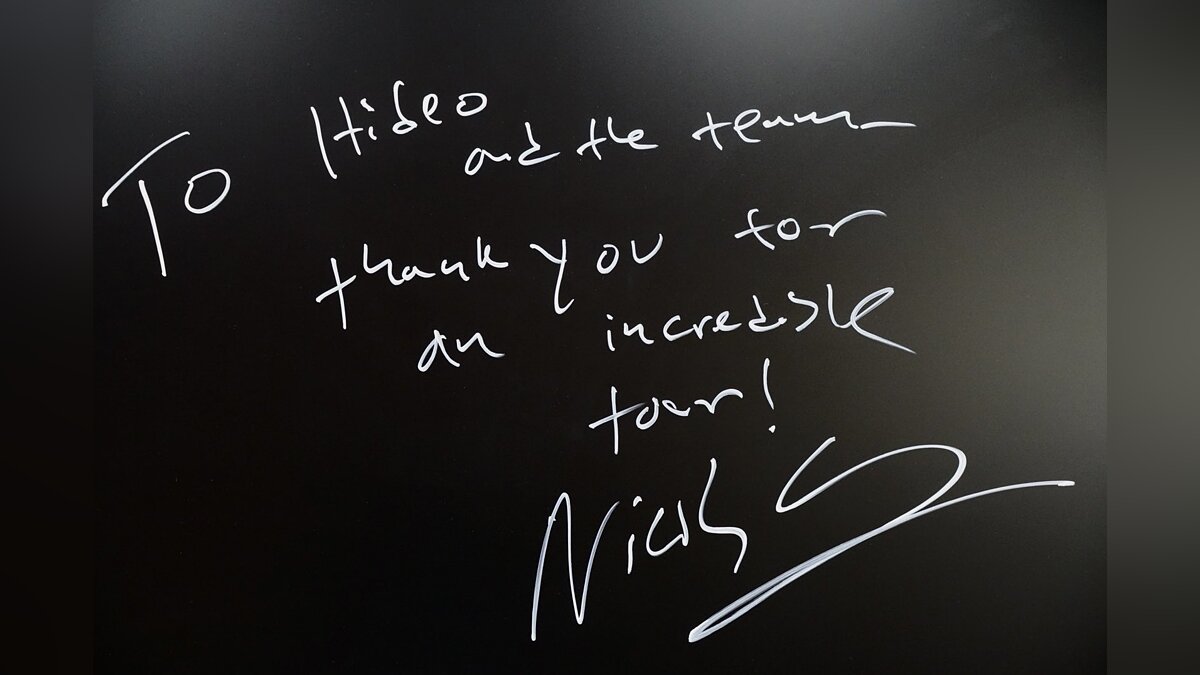 To Hideo
and the team
thank you for
an incredible
tour!